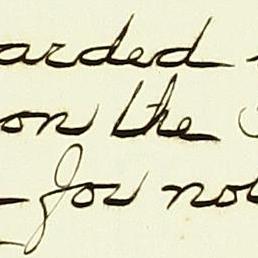 arded
on the
for not